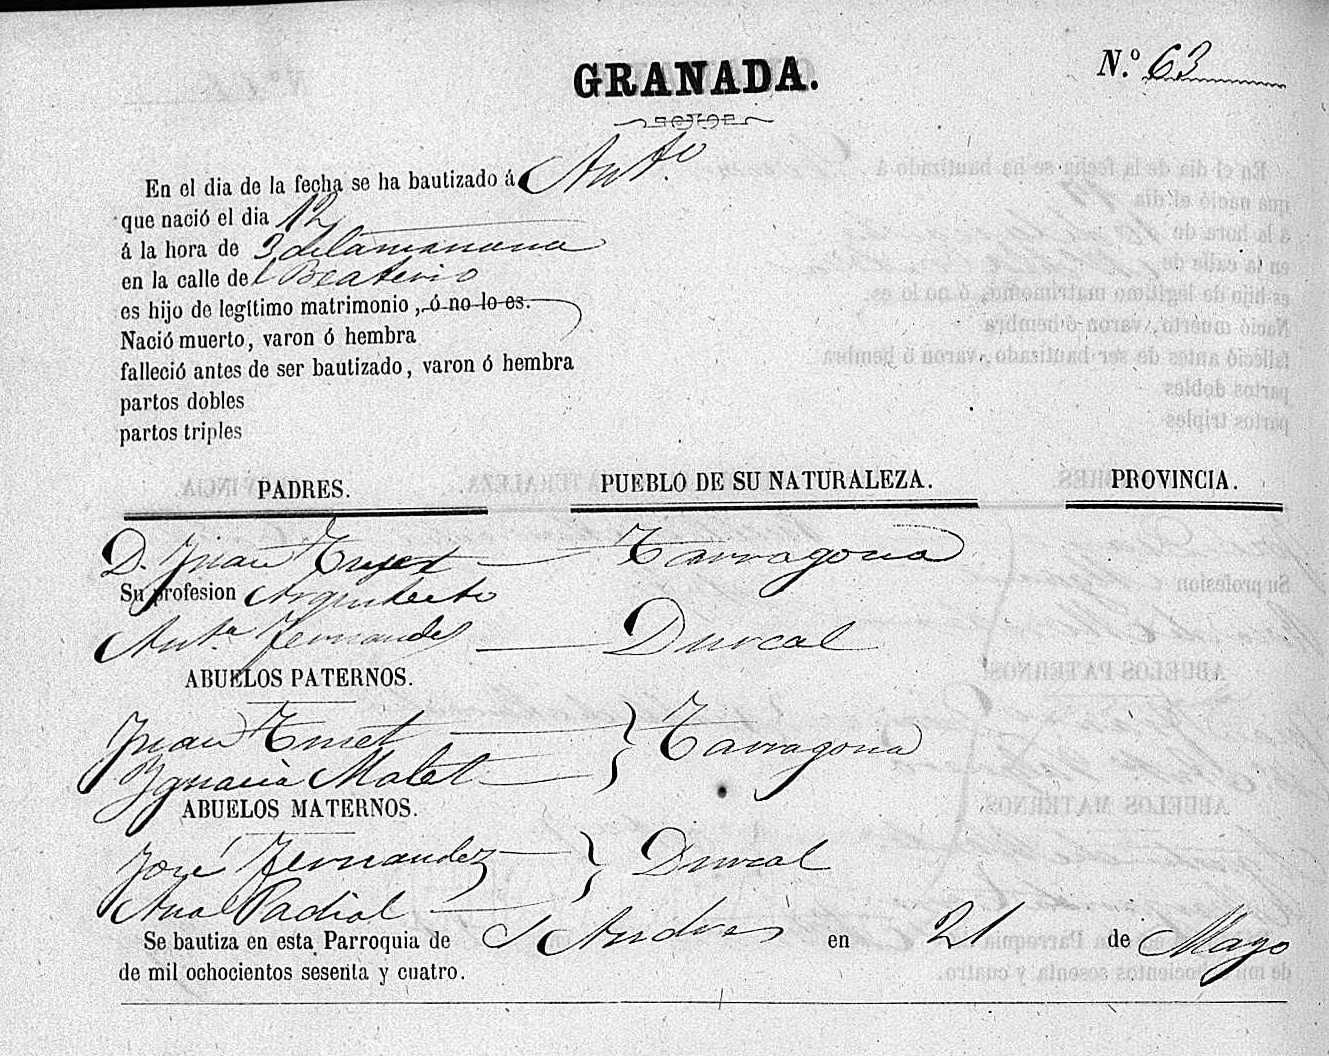 GRANADA.
N.º 63
En el dia de la fecha se ha bautizado á Antº
que nació el dia 12
á la hora de 3 de la manana
en la calle del Beaterio
es hijo de legítimo matrimonio, ó no lo es.
Nació muerto, varon ó hembra
falleció antes de ser bautizado, varon ó hembra
partos dobles
partos triples
PADRES. PUEBLO DE SU NATURALEZA. PROVINCIA.
D. Juan Tarragona
Su profesion
Antª Fernandez Durcal
ABUELOS PATERNOS.
Juan Tarragona
Ygnacia Malet
ABUELOS MATERNOS.
José Fernandez Durcal
Ana Padial
Se bautiza en esta Parroquia de S Andres en 21 de Mayo
de mil ochocientos sesenta y cuatro.